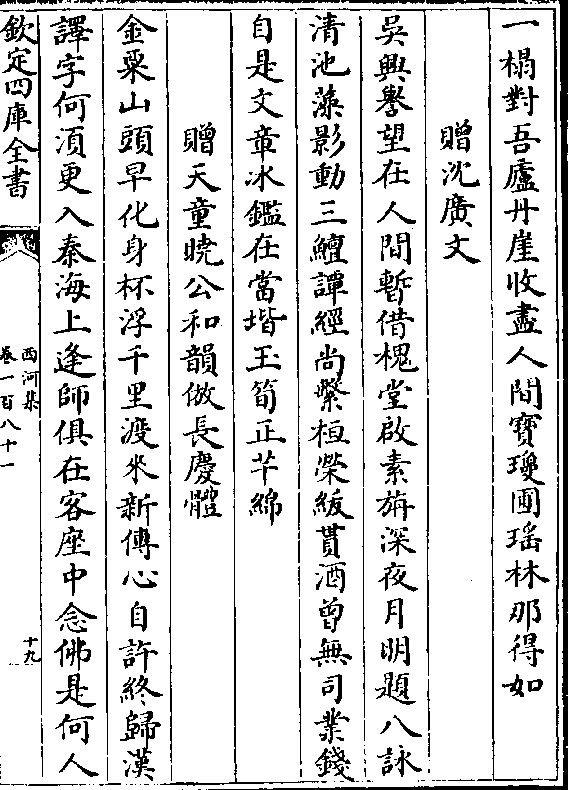 一榻對吾廬丹崖收盡人間寶瓊圃瑶林那得如
贈沈廣文
吳興譽望在人間暫借槐堂啟素旃深夜月明題八詠
清池藻影動三鱣譚經尚繫桓榮綬貰酒曾無司業錢
自是文章冰鑑在當堦玉筍正芊綿
贈天童曉公和韻倣長慶體
金粟山頭早化身杯浮千里渡來新傳心自許終歸漢
譯字何湏更入秦海上逢師俱在客座中念佛是何人
欽定四庫全書
西河集
卷一百八十一
十九